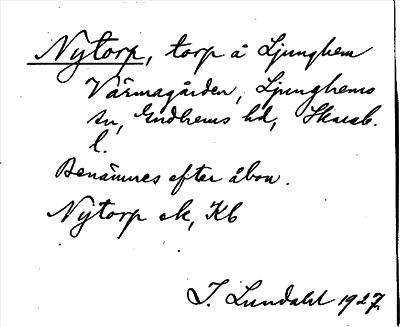 Nytorp, torp å Ljunghem
Värmagården, Ljunghems
sn, Gudhems hd, Skarab.
l.
Benämnes efter åbon.
Nytorp ek, Kb
I. Lundahl 1927.